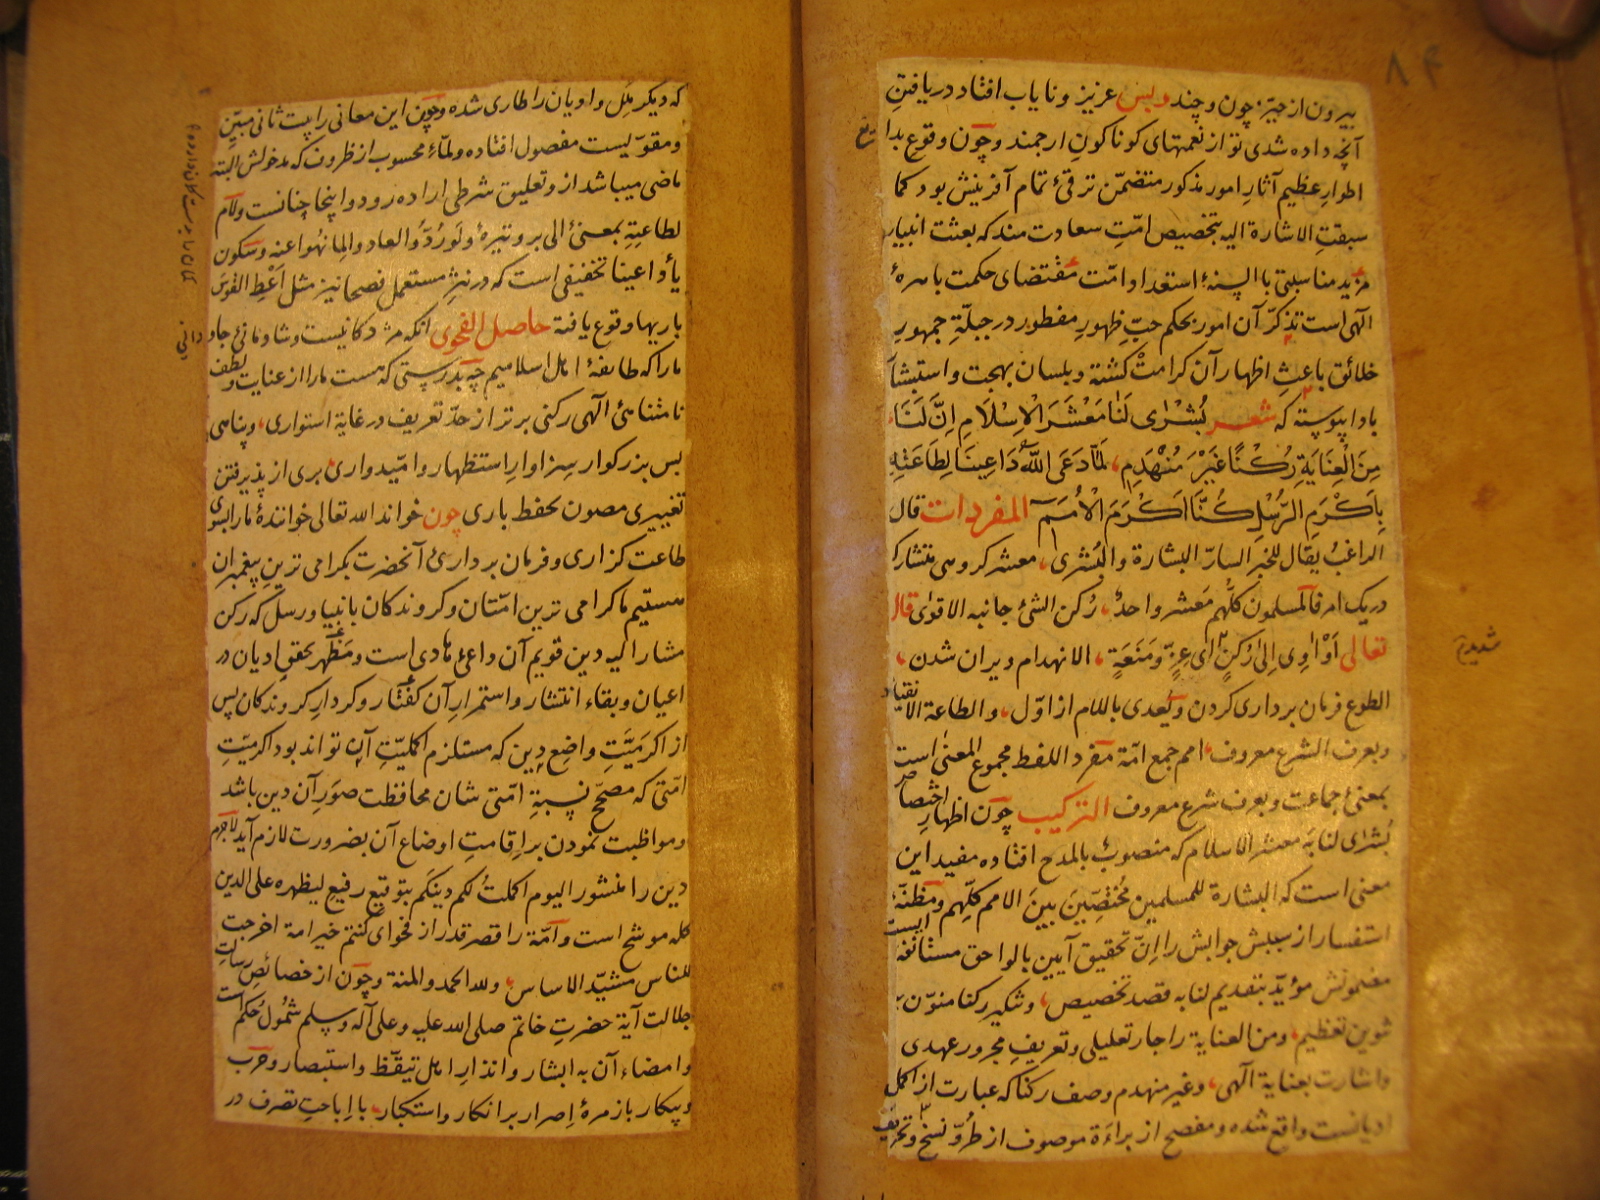 ۸۴
بیرون از حیّز چون و چند و بس عزیز و نایاب افتاد دریافتِ
آنچه داده شدی تو از نعمتهای کوناکونِ ارجمند و چون وقوع بدایع
اطوارِ عظیم آثارِ امور مذکور متضمّن ترقیٔ تمام آفرینش بود کما
سبقتِ الاشارة الیه بتخصیص امّتِ سعادت مند که بعثت انبیا
مزید مناسبتی با السنهٔ استعداد امّت مقتضای حکمت باهرهٔ
الهی است تذکّر آن امور بحکم حبِّ ظهورِ مفطور در جبلّةِ جمهورِ
خلائق باعثِ اظهار آن کرامت کشته و بلسان بهجت و استبشار
باداپیوسته که شعر بُشْرٰی لَنَا مَعْشَرَ الْاِسْلَامِ اِنَّ لَنَا
مِنَ الْعِنَایَةِ رُکْنًا غَیْرَ مُنْهَدِمِ، لَمَّا دَعَی اللّٰهُ دَاعِینَا لِطَاعَتِهِ
بِاَکْرَمِ الرُّسْلِ کُنَّا اَکْرَمَ الْاُمَمِ المفردات قال
الراغبُ یقال للخبر السارّ البشارة والبُشری، معشر کروهی متشارک
در یک امر فالمسلمون کلُّهم مَعشر واحدٌ، رُکن الشئ جانبه الاقوٰی قال
تعالی اَوْ اٰوِی اِلیٰ رُکنٍ ای عِزٍّ ومَنَعَةٍ، الانهدام ویران شدن،
الطوع فرمان برداری کردن و یُعدی باللام از اوّل، والطاعة الانقیاد
وبعرف الشرع معروف، امم جمع امّة مفرد اللفظ مجموع المعنٰی است
بمعنیٔ جماعت وبعرف شرع معروف الترکیب چون اظهارِ اختصاص
بُشرٰی لنا به معشر الاسلام که منصوبٌ بالمدح افتاده مفید این
معنی است که البشارة للمسلمین مُختصِّینَ بینَ الامم کلِّهم ومظنّهٔ
استفسار از سببش جوابش را اِنّ تحقیق آیین بالواحق مستأنفهٔ ایست
مضمونش مؤیّد بتقدیم لنا به قصد تخصیص، و تنکیر رکنا منوّن
تنوین تعظیم، ومن العنایة را جار تعلیلی و تعریفِ مجرور عهدی
واشارت بعنایة الهی، وغیر منهدم وصف رکنا که عبارت از اکمل
ادیانست واقع شده و مفصح از براءة موصوف از طُروّ نسخ و تحریف
شدیدٍ
که دیکر مِلَل وادیان را طاری شده و چون این معانی را بیت ثانی مبیّن
و مقوّیست مفصول افتاده ولمّاءِ محسوب از ظروف که مدخولش البته
ماضی میباشد از و تعلیق شرطی اراده رود و اینجا چنانست ولام
لطاعتِهِ بمعنیٔ الی بر وتیرهٔ ولَورُدُّوا لعادوا لما نُهوا عنه وسکون
یأ داعینا تخفیفی است که در نثرِ مستعمل فصحا نیز مثل اَعْطِ القَوسَ
باریها وقوع یافته حاصل الفحوی آنکه مژدکانیست و شادمانیٔ جاودانی
ما را که طایفهٔ اهل اسلامیم چه بدرستی که هست ما را از عنایت ولطف
نامتناهیٔ الهی رکنی برتر از حدّ تعریف در غایة استواری، و پناهی
بس بزرکوار سزاوارِ استظهار و امّیدواری، بری از پذیرفتن
تغییری مصون بحفظ باری چون خواند الله تعالی خوانندهٔ ما را بسوی
طاعت کزاری و فرمان برداریٔ آنحضرت بکرامی ترینِ پیغمبران
هستیم ما کرامی ترین امّتان و کروندکان بانبیا و رسل که رکن
مشارالیه دین قویم آن داعیٔ هادی است و مَظهر تحققِ ادیان در
اعیان و بقاء انتشار و استمرارِ آن کفتار و کردارِ کروندکان پس
از اکرمیَّتِ واضِع دین که مستلزم اکملیّتِ آن تواند بود اکرمیّتِ
امّتی که مصحّحِ نسبةِ امّتی شان محافظت صوَر آن دین باشد
و مواظبت نمودن بر اقامتِ اوضاع آن بضرورت لازم آید لاجرم
دین را منشور الیوم اکملتُ لکم دینکم بتوقیعِ رفیعِ لیظهره علی الدین
کله موشح است و اُمّة را قصر قدر از فحوای کنتم خیر امة اخرجت
للناس مشیّد الاساس، ولله الحمد والمنة و چون از خصائصِ رسالت
جلالت آیة حضرتِ خاتم صلی الله علیه وعلی آله وسلم شمُول حُکم است
وامضاء آن به ابشار و انذارِ اهل تیقّظ و استبصار و حرب
و پیکار با زمرهٔ اِصرار بر انکار و استکبار، با اِباحتِ تصرف در